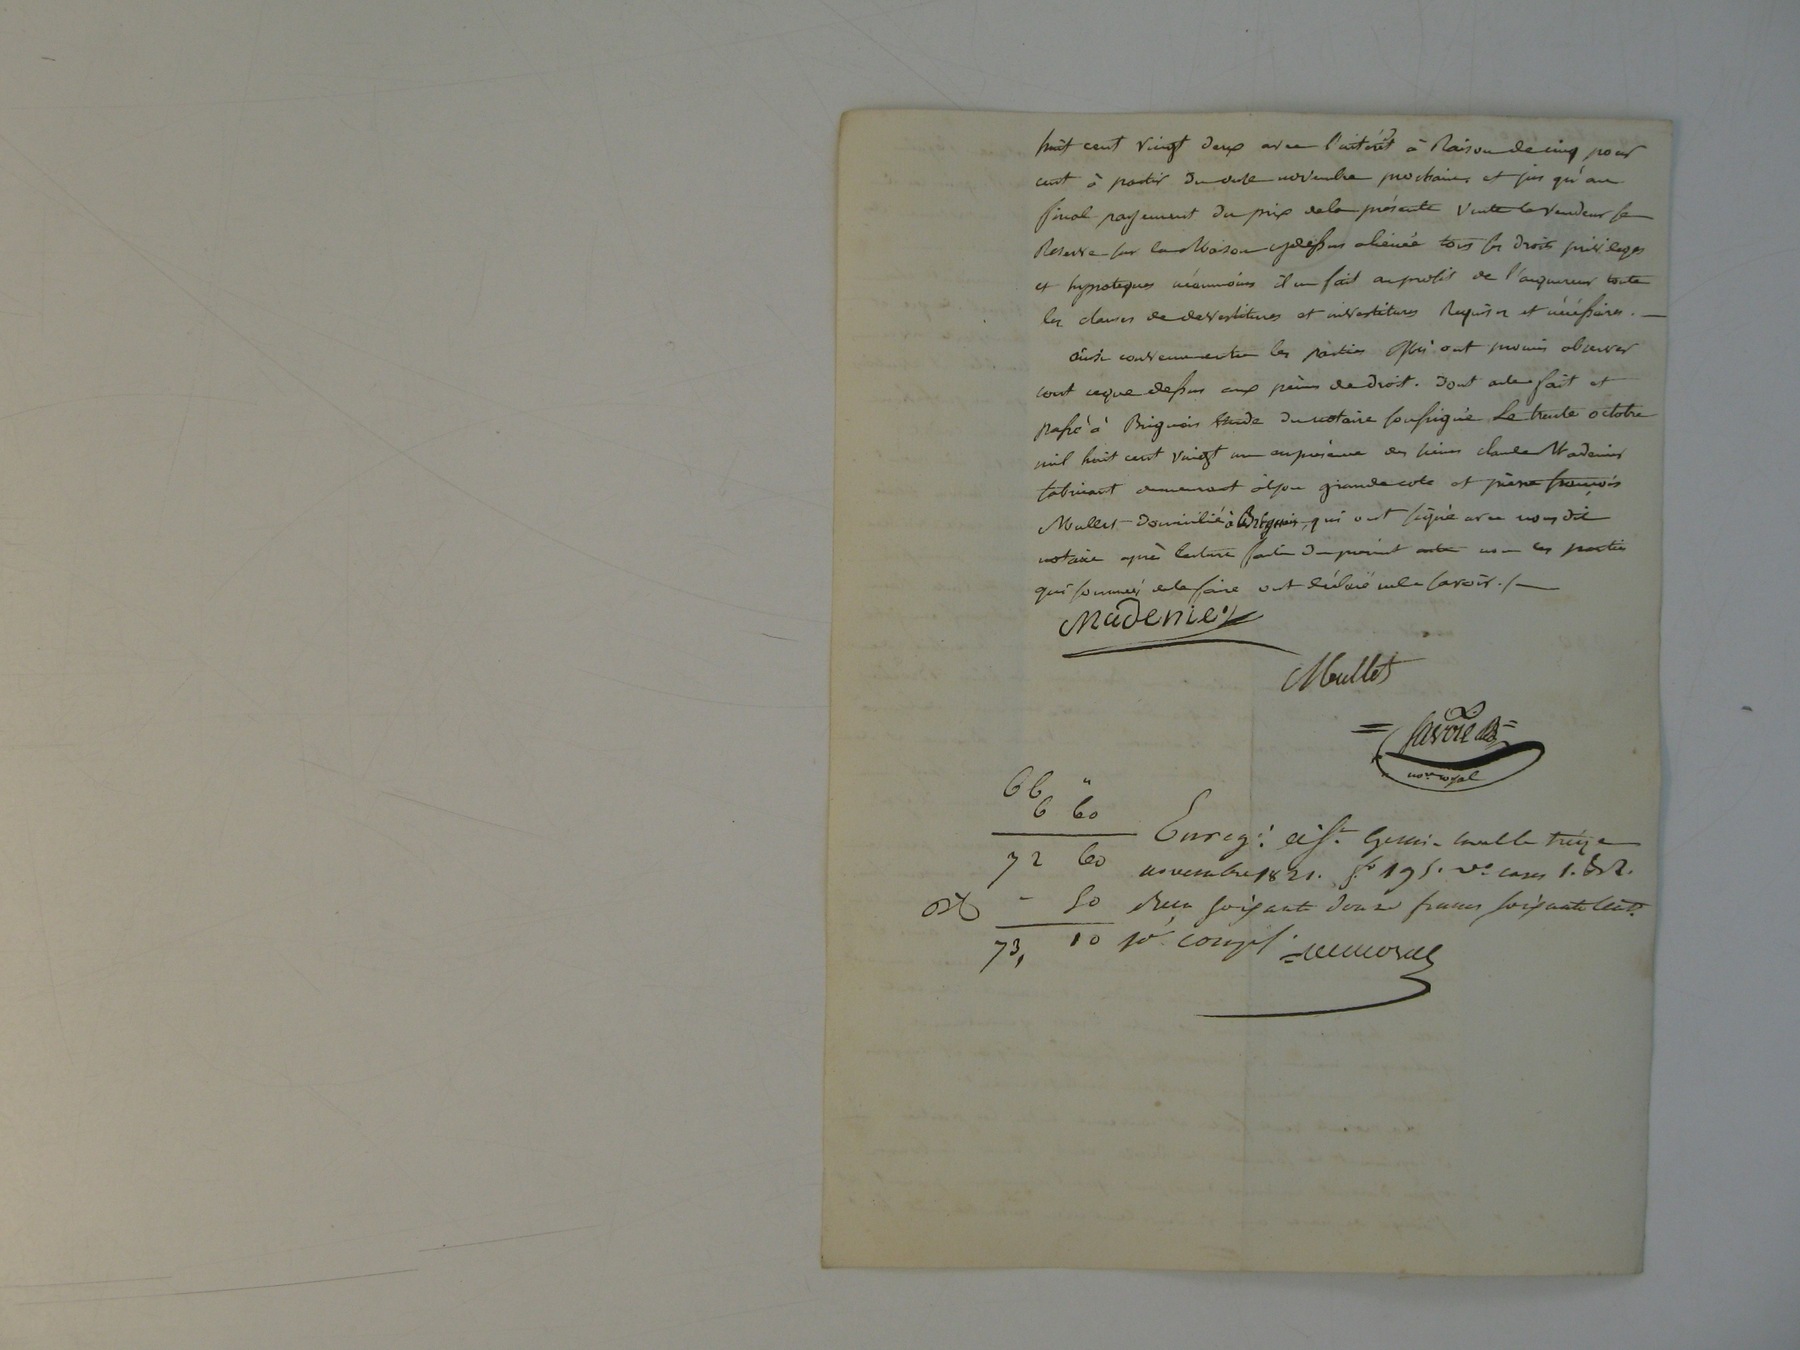 huit cent vingt deux avec l'intérêt à Raison de cinq pour
cent à partir du onze novembre prochain et jus qu'au
final payement du prix dela présente vente le vendeur se
Reserve sur la Maison cydessus alienée tous ses droits privileges
et hypoteques néanmoins il en fait au profit de l'aquereur toute
les clauses de devestitures et investitures Requises et nécéssaires. —
ainsi convenu entre les parties qui ont promis observer
tout ceque dessus aux peines de droit. dont acte fait et
passé à Brignais étude du notaire soussigné Le trente octobre
mil huit cent vingt un en présence des sieurs claude Madenier
fabricant demeurant à lyon grande cote et pierre françois
Mullet domicilié à Brignais, qui ont signé avec nous dit
notaire après lecture faite du présent acte non les parties
qui sommées de le faire ont déclaré ne le savoir. /—
Madenier
Mullet
= Savoie =
nore royal
66 "
6 60
72 60
- 50
73, 10
Enregé. à St. Genis-Laval le treize
novembre 1821. fo 195. vo cases 1. &2.
Recu soixante douze francs soixante cent.
xe. comps.